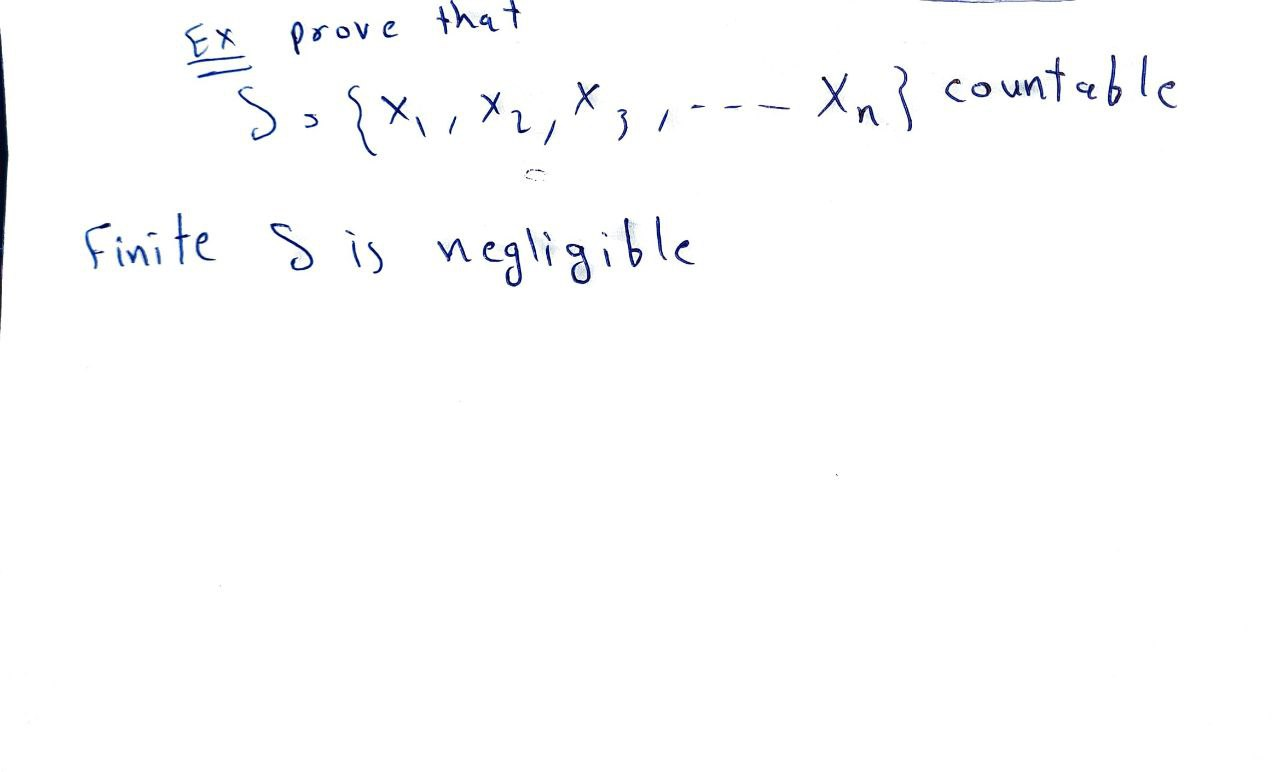 Ex prove that
S = {x₁, x₂, x₃, ---- xₙ} countable
Finite S is negligible